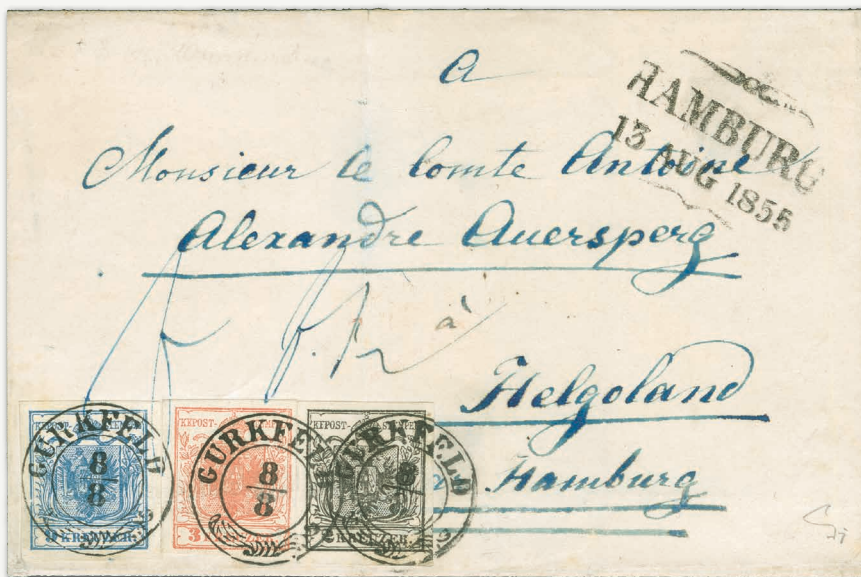 a
HAMBURG
13 AUG 1855
Monsieur le Comte Antoine
Alexandre Auersperg
à
Helgoland
Hamburg
GURKFELD
8/8
KKPOST-
9 KREUZER
GURKFELD
8/8
KKPOST-STEMPEL
3
GURKFELD
8/8
KKPOST-STEMPEL
2 KREUZER